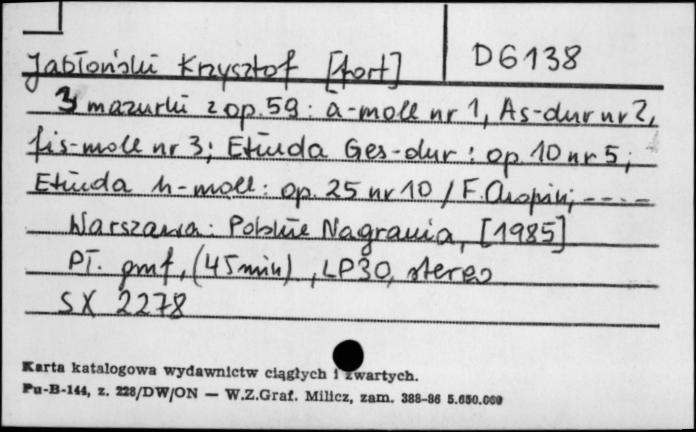 D6138
Jabłoński Krzysztof [fort]
3 mazurki z op. 59: a-moll nr 1, As-dur nr 2,
fis-moll nr 3; Etiuda Ges-dur: op. 10 nr 5;
Etiuda h-moll: op. 25 nr 10 / F. Chopin; -----
Warszawa: Polskie Nagrania, [1985]
Pł. gmf, (45 min), LP30, stereo
SX 2278
Karta katalogowa wydawnictw ciągłych i zwartych.
Pu-B-144, z. 228/DW/ON — W.Z.Graf. Milicz, zam. 388-86 5.650.000